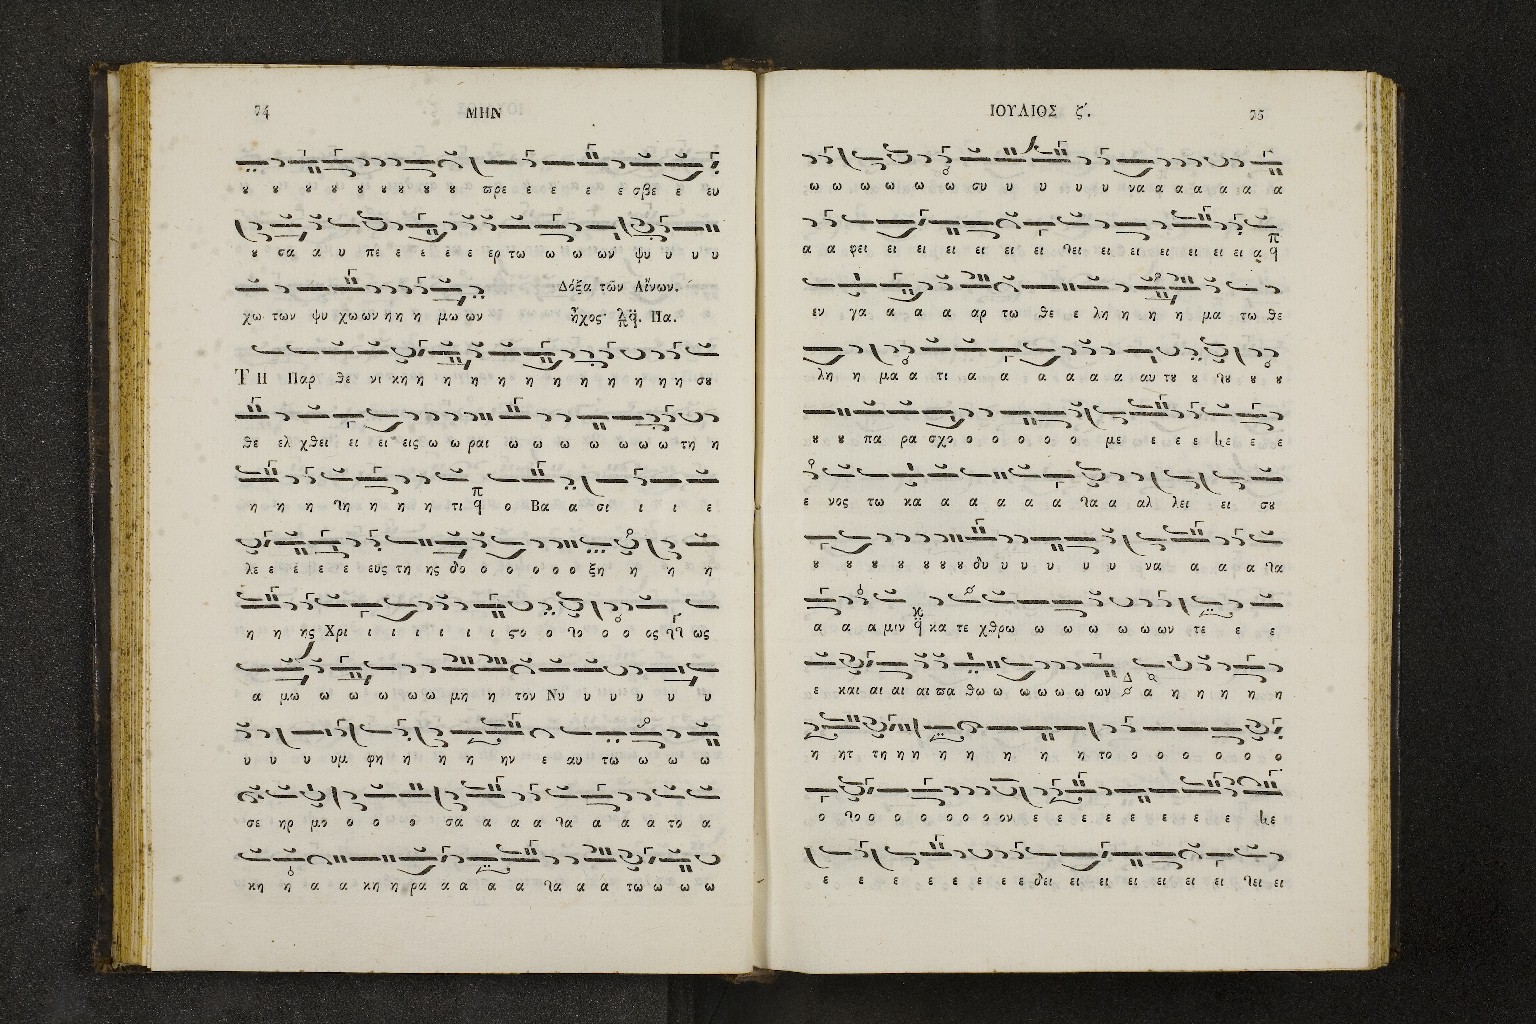 74 ΜΗΝ
ȣ ȣ ȣ ȣ ȣ ȣ ȣ ȣ ϖρε ε ε ε ε σβε ε ευ
ȣ σα α υ πε ε ε ε ε ερ τω ω ω ων ψυ υ υ υ
Δόξα τῶν Αἴνων.
χω των ψυ χω ων η η η μω ων ἦχος Πα.
ΤΗ Παρ θε νι κη η η η η η η η η η η η η σȣ
θε ελ χθει ει ει εις ω ω ραι ω ω ω ω ω ω ω τη η
η η η λη η η η τι ο Βα α σι ι ι ε
λε ε ε ε ε ευς τη ης δο ο ο ο ο ο ξη η η η
η η ης Χρι ι ι ι ι ι ι ςο ο λο ο ο ος ως
α μω ω ω ω ω ω μη η τον Νυ υ υ υ υ υ
υ υ υ υμ φη η η η η ην ε αυ τω ω ω ω
σε ηρ μο ο ο ο σα α α α λα α α α το α
κη η α α κη η ρα α α α α λα α α τω ω ω ω
ΙΟΥΛΙΟΣ ζ΄. 75
ω ω ω ω ω ω συ υ υ υ υ να α α α α α α
α α φει ει ει ει ει ει ει λει ει ει ει ει ει ει α
εν γα α α α αρ τω θε ε λη η η η μα τω θε
λη η μα α τι α α α α α α αυ τȣ ȣ λȣ ȣ ȣ
ȣ ȣ πα ρα σχο ο ο ο ο ο με ε ε ε ε ε
ε νος τω κα α α α α α λα α αλ λει ει σȣ
ȣ ȣ ȣ ȣ ȣ ȣ ȣ δυ υ υ υ υ υ να α α α λα
α α α μιν κα τε χθρω ω ω ω ω ω ων τε ε ε
ε και αι αι αι ϖα θω ω ω ω ω ω ων α η η η η η
η ητ τη η η η η η η η το ο ο ο ο ο ο
ο λο ο ο ο ο ο ο ον ε ε ε ε ε ε ε ε
ε ε ε ε ε ε ε ε δει ει ει ει ει ει ει λει ει